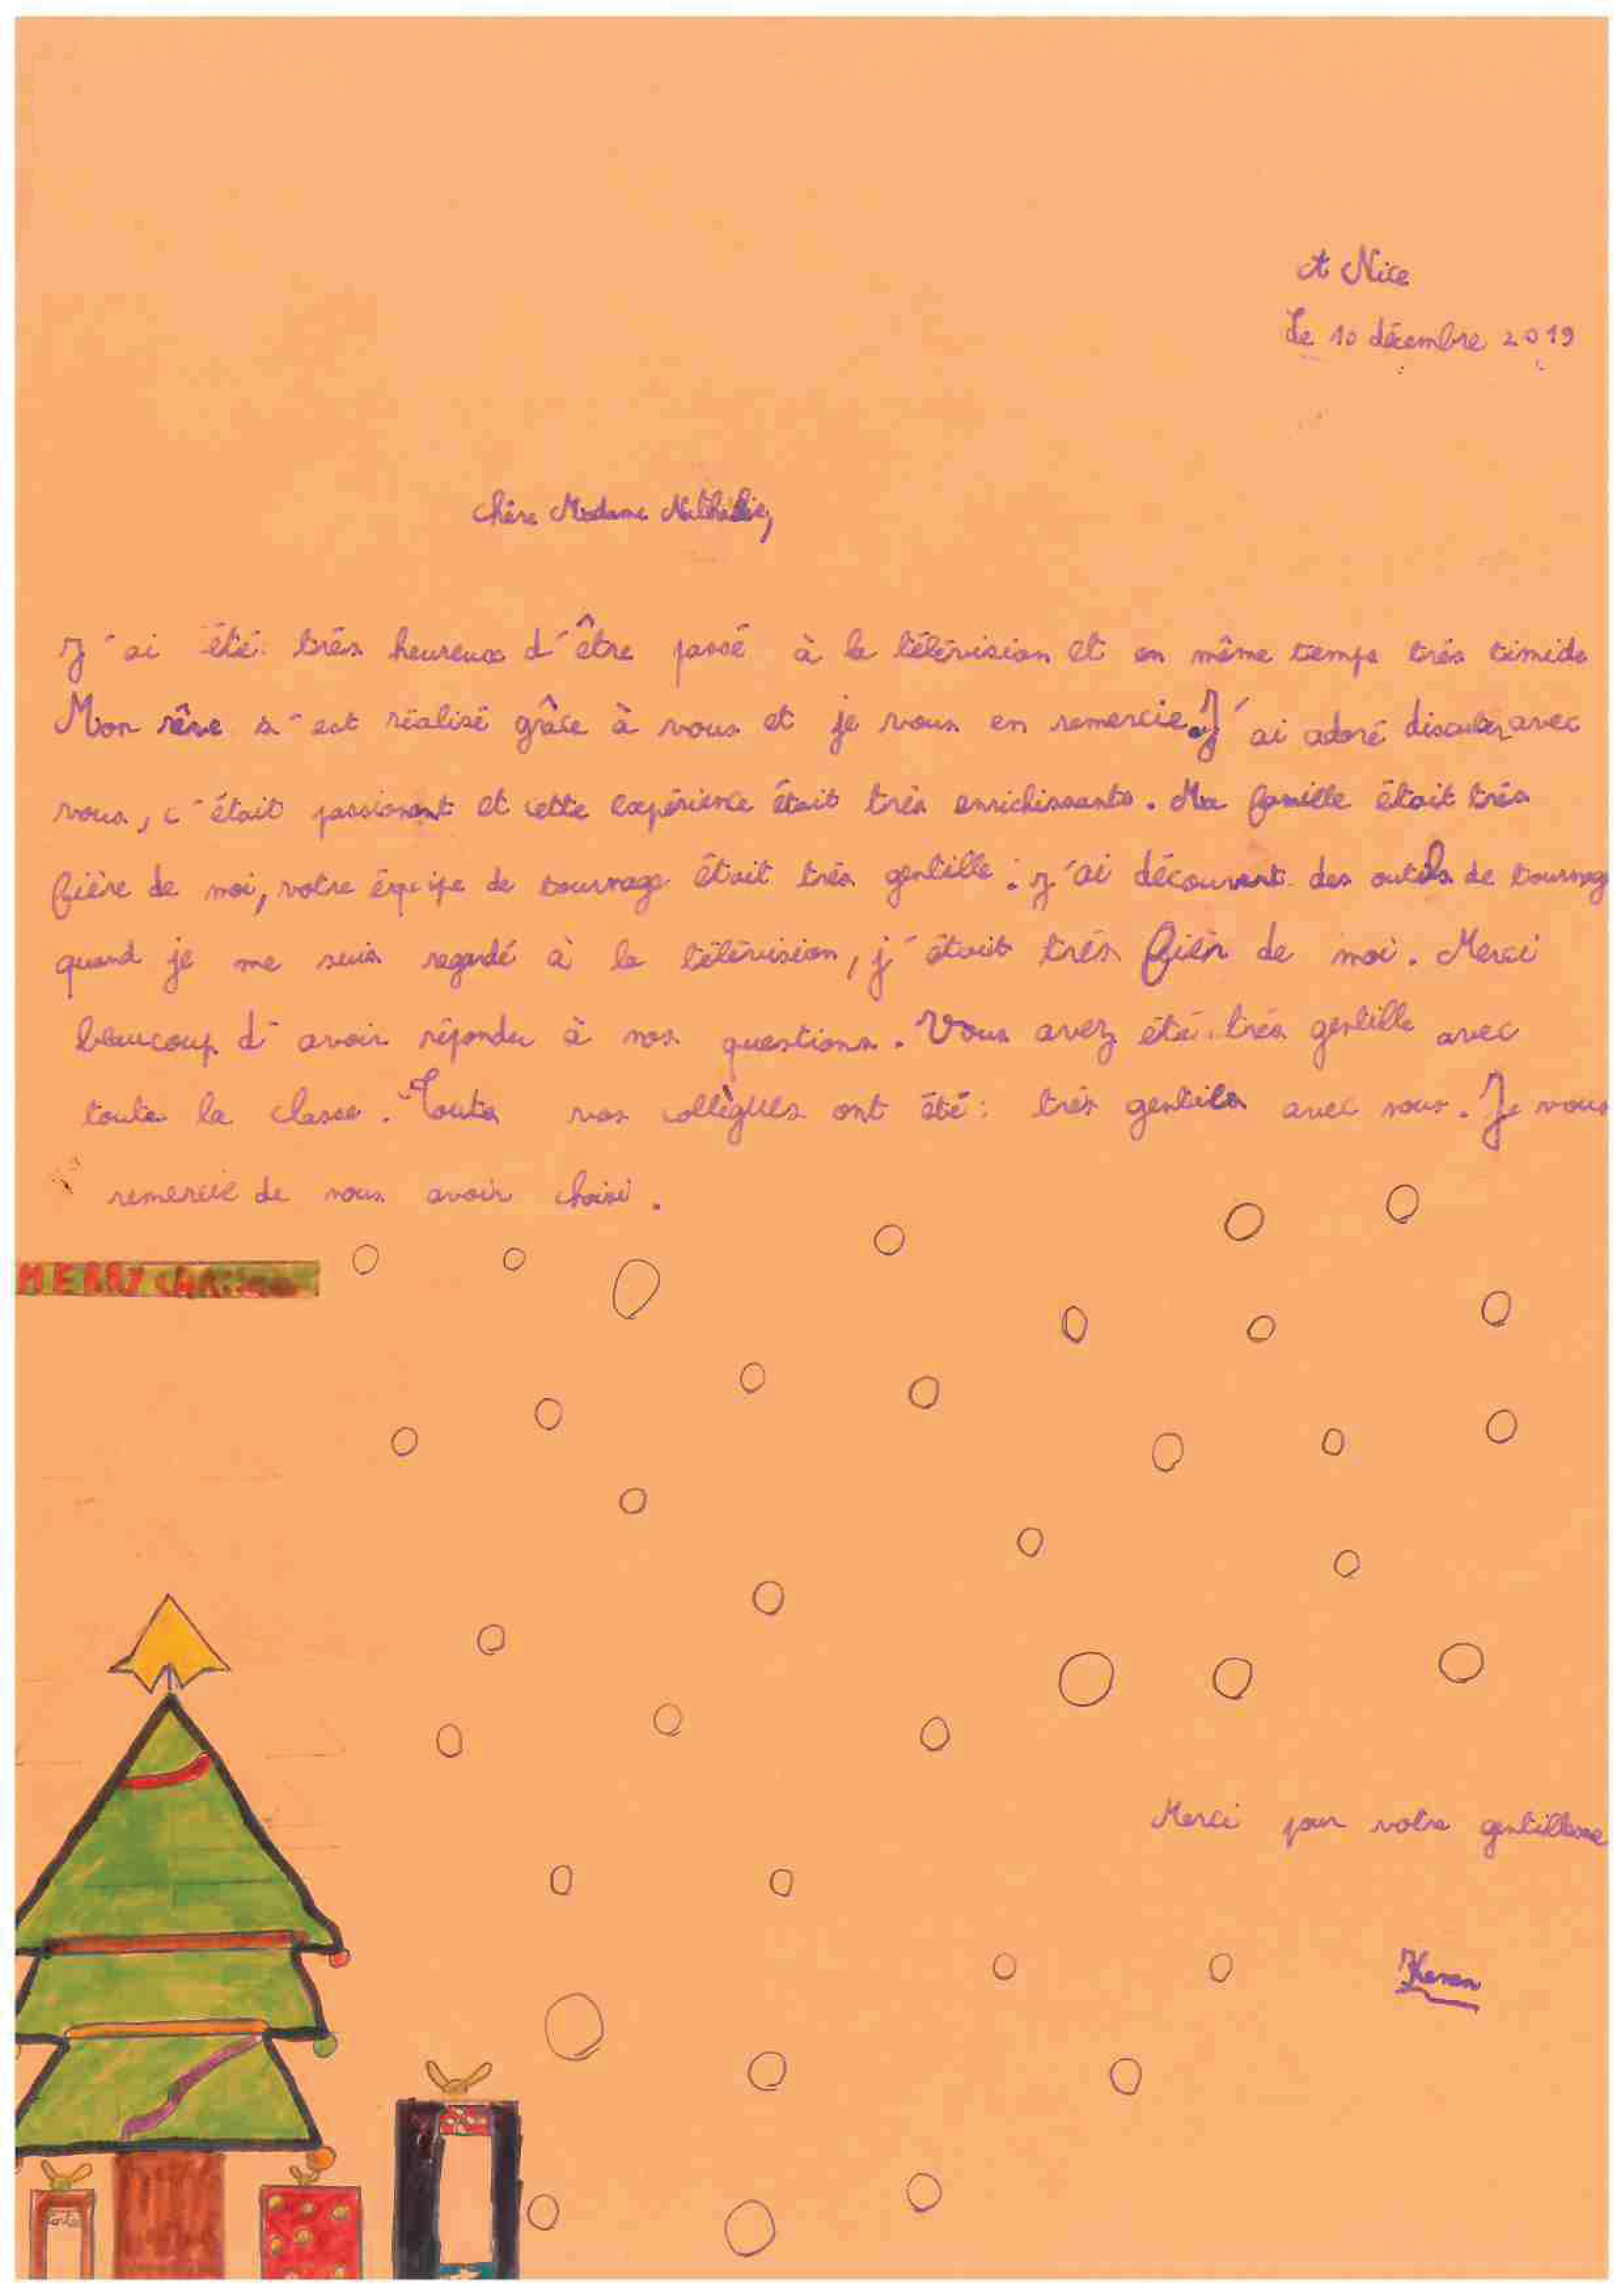 A Nice
Le 10 décembre 2019
Chère Madame Nathalie,
J'ai été très heureux d'être passé à la télévision et en même temps très timide
Mon rêve s'est réalisé grâce à vous et je vous en remercie. J'ai adoré discuter avec
vous, c'était passionant et cette expérience était très enrichissante. Ma famille était très
fière de moi, votre équipe de tournage était très gentille. j'ai découvert des outils de tournage
quand je me suis regardé à la télévision, j'étais très fièr de moi. Merci
beaucoup d'avoir répondu à nos questions. Vous avez été très gentille avec
toute la classe. Touts vos collègues ont été très gentils avec nous. Je vous
remercie de nous avoir choisi.
MERRY
Merci pour votre gentillesse
Kenan